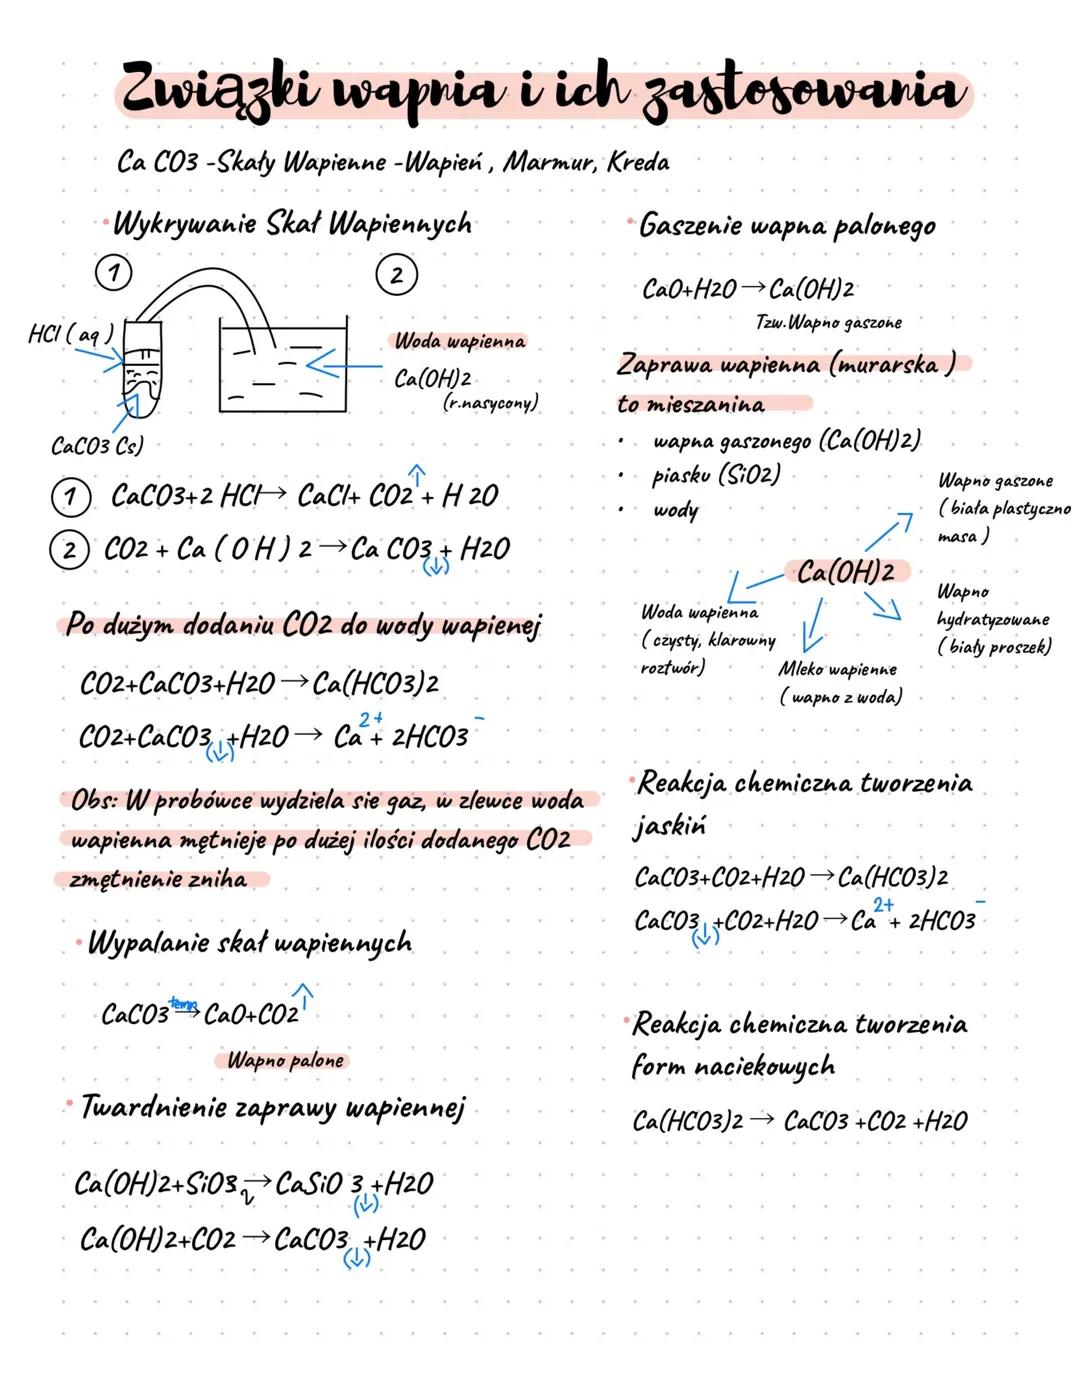 Związki wapnia i ich zastosowania
Ca CO3 -Skały Wapienne -Wapień, Marmur, Kreda
• Wykrywanie Skał Wapiennych
1
2
HCl (aq)
Woda wapienna
Ca(OH)2
(r.nasycony)
CaCO3 Cs)
1 CaCO3+2 HCl→ CaCl+ CO2↑+ H2O
2 CO2 + Ca(OH)2→Ca CO3(↓)+ H2O
Po dużym dodaniu CO2 do wody wapienej
CO2+CaCO3+H2O→Ca(HCO3)2
CO2+CaCO3(↓)+H2O→ Ca2++ 2HCO3-
Obs: W probówce wydziela sie gaz, w zlewce woda
wapienna mętnieje po dużej ilości dodanego CO2
zmętnienie zniha
• Wypalanie skał wapiennych
CaCO3 temp→ CaO+CO2↑
Wapno palone
• Twardnienie zaprawy wapiennej
Ca(OH)2+SiO2→CaSiO3(↓)+H2O
Ca(OH)2+CO2→CaCO3(↓)+H2O
• Gaszenie wapna palonego
CaO+H2O→Ca(OH)2
Tzw.Wapno gaszone
Zaprawa wapienna (murarska)
to mieszanina
• wapna gaszonego (Ca(OH)2)
• piasku (SiO2)
• wody
Wapno gaszone
(biała plastyczno
masa)
Ca(OH)2
Wapno
hydratyzowane
(biały proszek)
Woda wapienna
(czysty, klarowny
roztwór)
Mleko wapienne
(wapno z woda)
• Reakcja chemiczna tworzenia
jaskiń
CaCO3+CO2+H2O→Ca(HCO3)2
CaCO3(↓)+CO2+H2O→Ca2++ 2HCO3-
• Reakcja chemiczna tworzenia
form naciekowych
Ca(HCO3)2→ CaCO3 +CO2 +H2O